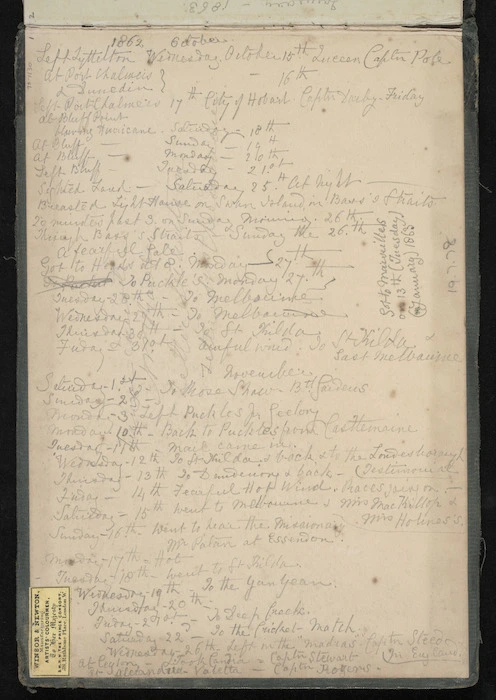 1862 October
Left Lyttelton Wednesday October 15th Queen Captn Pole
at Port Chalmers } — 16th
& Dunedin }
Left Port Chalmers 17th City of Hobart. Captn Darby - Friday
at Bluff Point
blowing Hurricane. Saturday 18th
At Bluff — Sunday — 19th
At Bluff — Monday — 20th
Left Bluff — Tuesday — 21st
Sighted Land — Saturday 25th At night
Breasted Light House on Swan Island in Bass's Straits
20 minutes past 3 on Sunday Morning. 26th
Through Bass's Straits — Sunday the 26th
A fearful Gale
Got to Heads at 8. Monday — 27th
To Puckle's — Monday 27th
Tuesday — 28th — To Melbourne
Wednesday — 29th — To Melbourne
Thursday 30th — To St Kilda
Friday 31st awful wind. To St Kilda &
East Melbourne
Got to Marseilles
on 13th (Tuesday)
(January 1863
November
Saturday - 1st - To Rose Show - Bot Gardens
Sunday - 2
Monday - 3 - Left Puckles for Geelong
Monday 10th - Back to Puckles from Castlemaine
Tuesday - 11th - Mack came in.
Wednesday - 12th To St Kilda & back & to the Londesborough
Thursday - 13th To Dundenong & back - (Testimonial
Friday - 14th Fearful Hot Wind. Races going on -
Saturday - 15th went to Melbourne & Mrs MacKillop &
Mrs Holmes's
Sunday 16th Went to hear the Missionary
Mr Paton at Essendon.
Monday - 17th - Hot
Tuesday - 18th - went to St Kilda.
Wednesday - 19th To the Yan Yean
Thursday - 20th
Friday - 21st - To Deep Creek.
Saturday - 22 - To the Cricket Match.
Wednesday - 26th left in the Madras Captn
at Ceylon - Captn Stewart In England.
To Alexandria - Valetta - Captn
WINSOR & NEWTON,
ARTISTS' COLOURMEN,
To Her Majesty
38, Rathbone Place London. W.